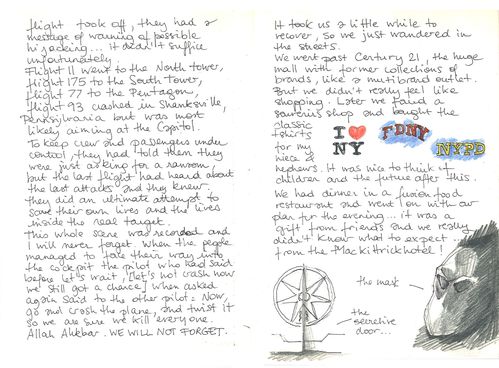 flight took off, they had a
message of warning of possible
hijacking... it didn't suffice
unfortunately.
Flight 11 went to the North tower,
flight 175 to the South Tower,
flight 77 to the Pentagon,
flight 93 crashed in Shanksville,
Pennsylvania but was most
likely aiming at the Capitol.
To keep crew and passengers under
control, they had told them they
were just asking for a ransom,
but the last flight had heard about
the last attacks and they knew.
they did an ultimate attempt to
save their own lives and the lives
inside the real target.
This whole scene was recorded and
I will never forget when the people
managed to take their way into
the cockpit the pilot who had said
before let's wait, [let's not crash now
we still got a chance] when asked
again said to the other pilot: Now,
go and crash the plane, and twist it
so we are sure we kill everyone.
Allah Akbar. WE WILL NOT FORGET.
It took us a little while to
recover, so we just wandered in
the streets.
We went past Century 21, the huge
mall with former collections of
brands, like a multibrand outlet.
But we didn't really feel like
shopping. Later we found a
souvenirs shop and bought the
classic
tshirts
for my
niece &
nephews. It was nice to think of
children and the future after this.
I ❤ NY
FDNY
NYPD
We had dinner in a fusion food
restaurant and went on with our
plan for the evening... it was a
gift from friends and we really
didn't know what to expect...
from the Mac Kittrick hotel!
the mask
the
secretive
door...